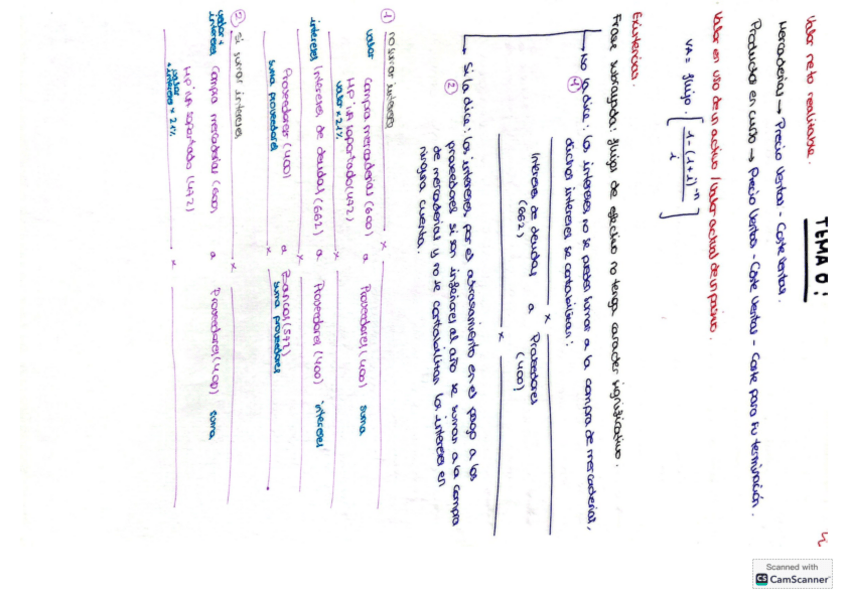 TEMA 0:
Valor neto realizable.
Mercaderías → Precio ventas - Coste ventas.
Productos en curso → Precio Ventas - Coste Ventas - Coste para su terminación.
Valor en uso de un activo / Valor actual de un pasivo.
VA = flujo · [ 1 - (1+i)^-n / i ]
Existencias.
Frase subrayada: flujos de efectivo no tenga carácter significativo.
→ No la dice: los intereses no se pueden sumar a la compra de mercaderías,
① dichos intereses se contabilizan:
x
Intereses de deudas a Proveedores
(662) (400)
x
→ Si la dice: los intereses por el aplazamiento en el pago a los
② proveedores si son inferiores al año se suman a la compra
de mercaderías y no se contabilizan los intereses en
ninguna cuenta.
① no sumar intereses
x
valor Compra mercaderías (600) a Proveedores (400) suma
HP iva soportado (472)
valor × 21%
x
intereses Intereses de deudas (662) a Proveedores (400) intereses
x
Proveedores (400) a Bancos (572)
suma proveedores suma proveedores
② si sumar intereses
x
valor + intereses Compra mercaderías (600) a Proveedores (400) suma
HP iva soportado (472)
valor + intereses × 21%
x
Scanned with
CS CamScanner